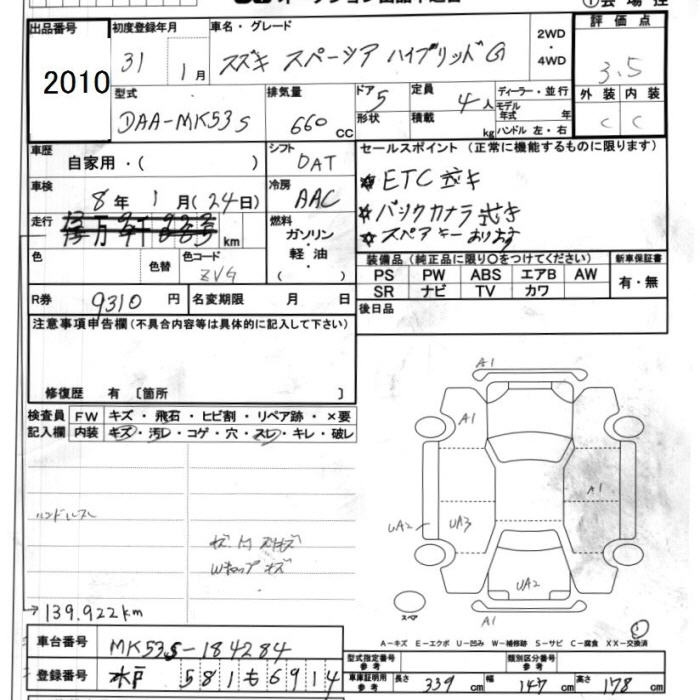 出品番号
2010
初度登録年月
31 1月
車名・グレード
スズキ スペーシア ハイブリッドG
2WD
・
4WD
評価点
3.5
型式
DAA-MK53S
排気量
660 CC
ドア
5
形状
定員
4人
積載
kg
ディーラー・並行
モデル
年式 年
ハンドル 左・右
外装 内装
C C
車歴
自家用・( )
シフト
DAT
セールスポイント (正常に機能するものに限ります)
ETC 付き
バックカメラ 付き
スペアキーあります
車検
8年 1月(24日)
冷房
AAC
走行
km
燃料
ガソリン
・
軽油
( )
色
色替
色コード
ZVG
装備品(純正品に限り○をつけてください)
PS PW ABS エアB AW
SR ナビ TV カワ
新車保証書
有・無
R券
9310 円
名変期限 月 日
後日品
注意事項申告欄(不具合内容等は具体的に記入して下さい)
修復歴 有 [箇所 ]
検査員
記入欄
FW キズ・飛石・ヒビ割・リペア跡・×要
内装 キズ・汚レ・コゲ・穴・スレ・キレ・破レ
ハンドルスレ
Wキャップ キズ
→139.922km
A1
A1
A1
UA2
UA3
UA2
A1
スペア
A-キズ E-エクボ U-凹み W-補修跡 S-サビ C-腐食 XX-交換済
車台番号
MK53S-184284
登録番号
水戸 581 も 6914
型式指定番号
参考
類別区分番号
参考
車庫証明用
参考
長さ 339 cm 幅 147 cm 高さ 178 cm